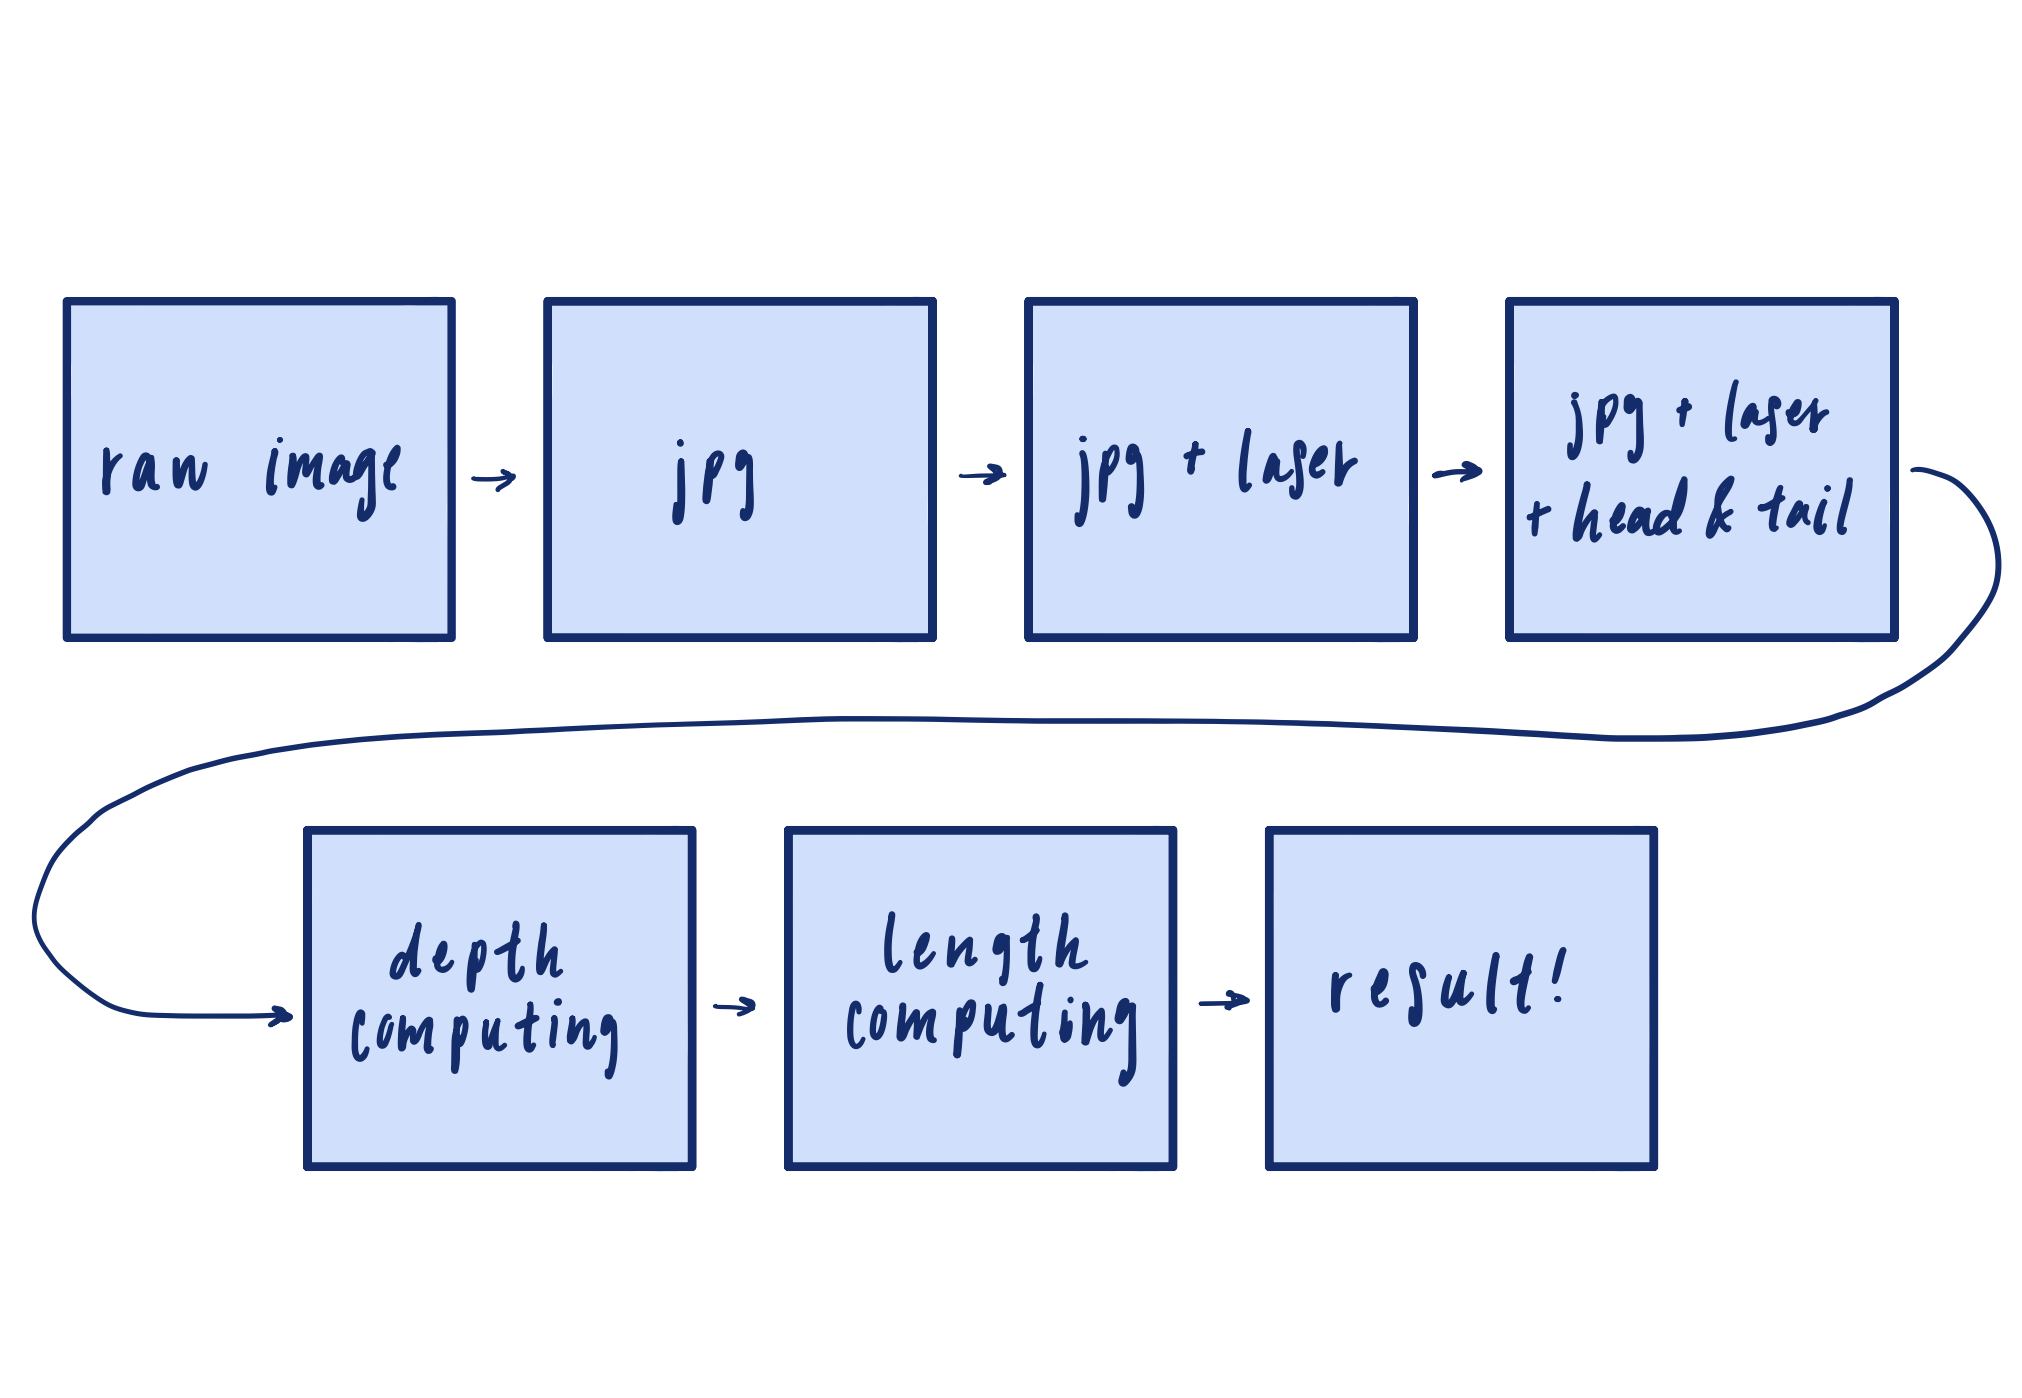 raw image
jpg
jpg + laser
jpg + laser
+ head & tail
depth
computing
length
computing
result!